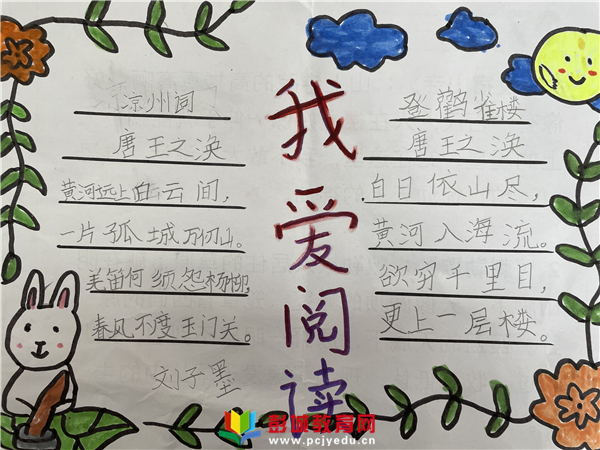 凉州词
唐王之涣
黄河远上白云间，
一片孤城万仞山。
羌笛何须怨杨柳，
春风不度玉门关。
刘子墨
我爱阅读
登鹳雀楼
唐王之涣
白日依山尽，
黄河入海流。
欲穷千里目，
更上一层楼。
城教育网
www.pcjyedu.cn